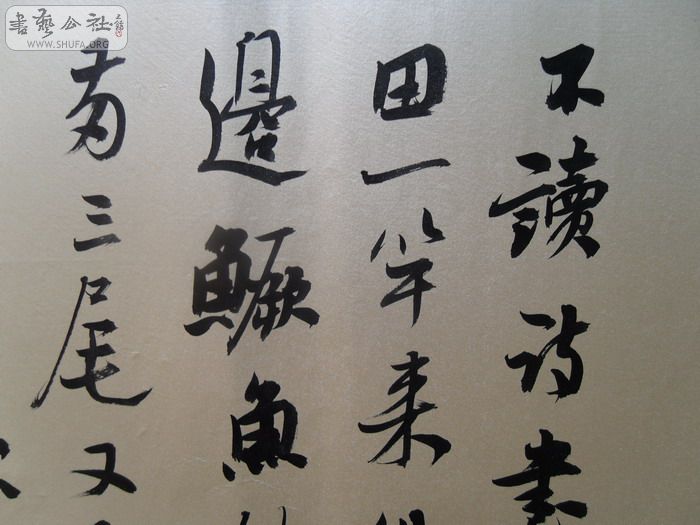 不讀詩書
田一竿來
邊鱖魚
兩三尾又
書藝公社
WWW.SHUFA.ORG